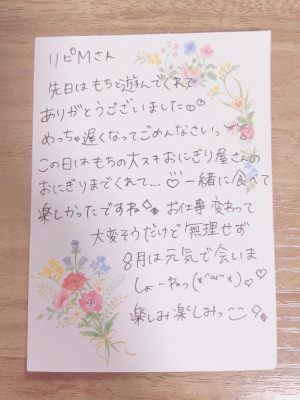 リピMさん
先日はもちと遊んでくれて
ありがとうございました
めっちゃ遅くなってごめんなさいっ
この日はもちの大スキおにぎり屋さんの
おにぎりまでくれて...♡一緒に食べて
楽しかったですね お仕事変わって
大変そうだけど無理せず
8月は元気で会いま
しょーねっ(*^ω^*)♡♡
楽しみ楽しみっ